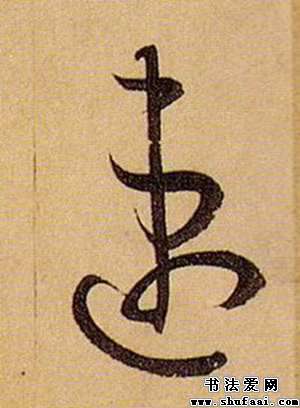 速
书法爱网
www.shufaai.com